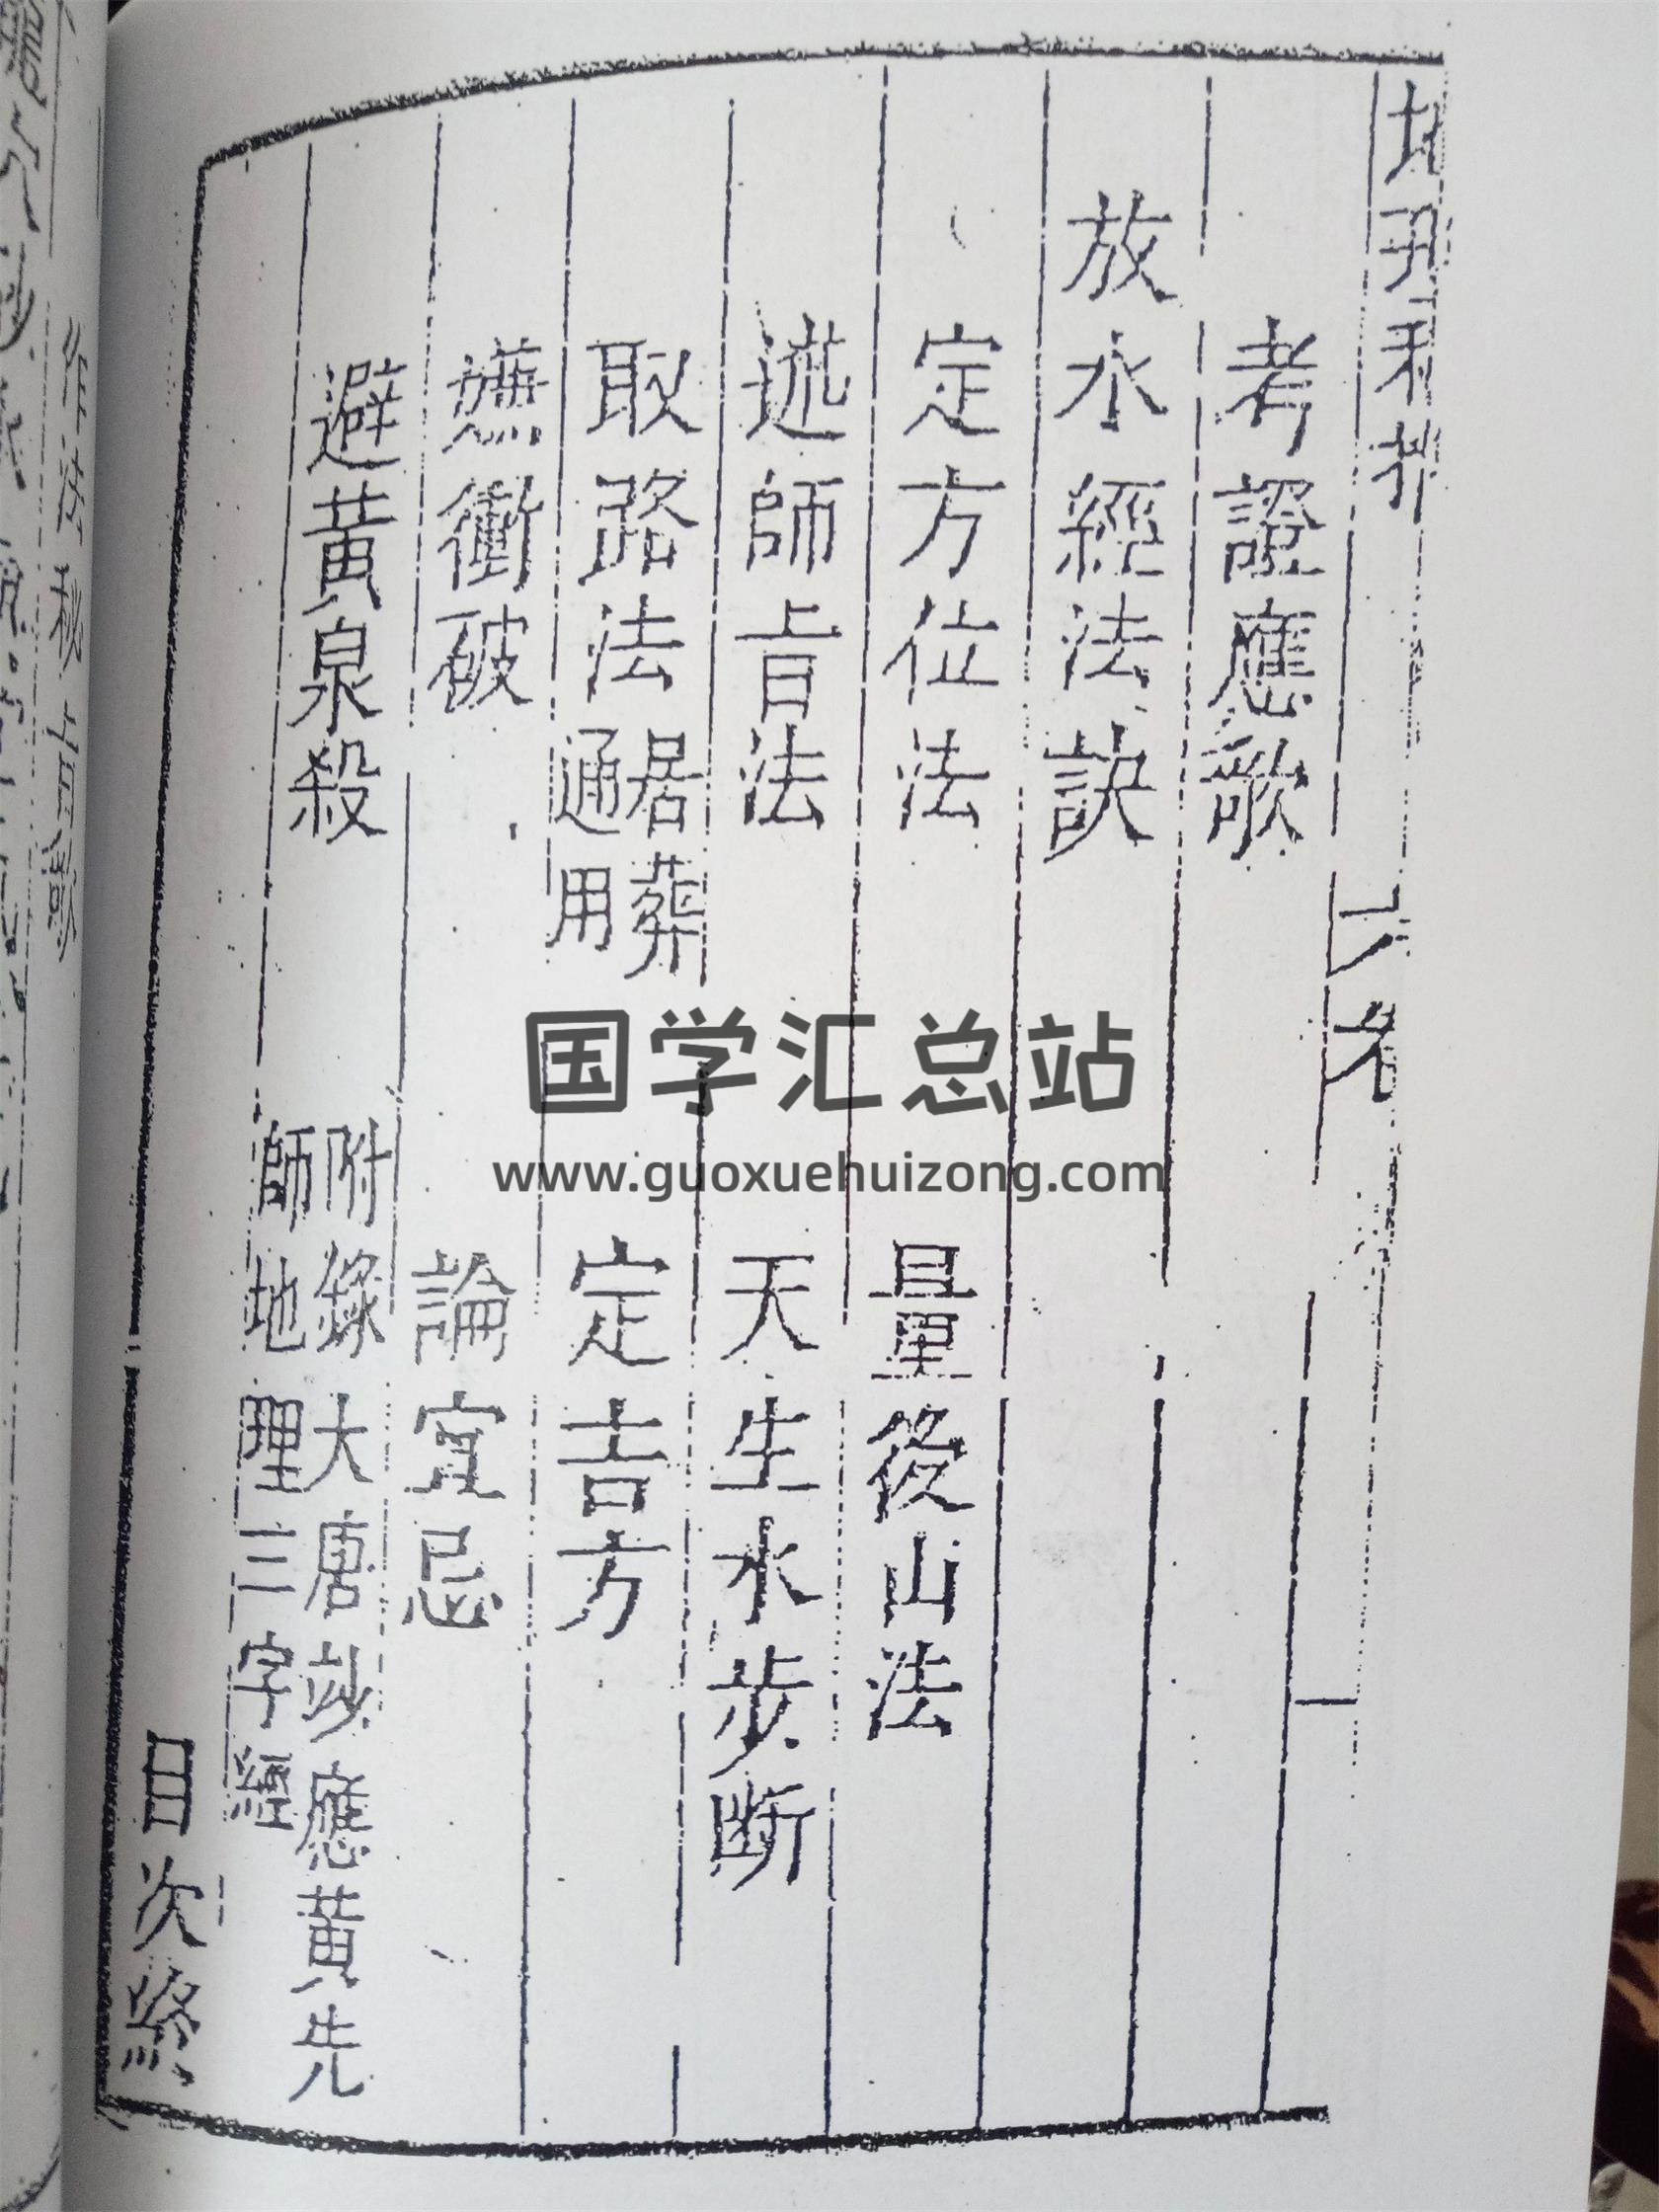 考證應歌
放水經法訣
定方位法 量後山法
逃師旨法 天生水步断
取路法 居葬通用 定吉方
嫌衝破 論宜忌
避黄泉殺 附錄大唐妙應黄先師地理三字經
目次終
国学汇总站
www.guoxuehuizong.com